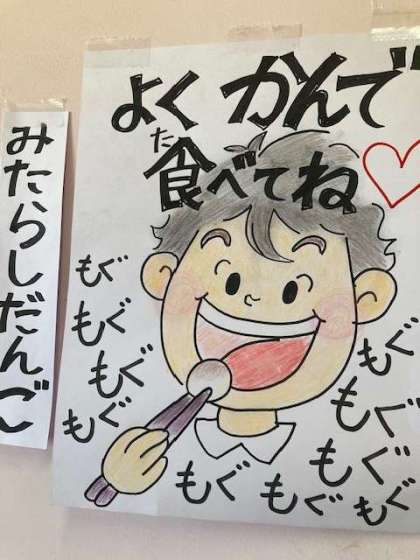 よくかんで
た
食べてね♡
みたらしだんご
もぐ
もぐ
もぐ
もぐ
もぐ
もぐ
もぐ
もぐ
もぐ
もぐ
もぐ